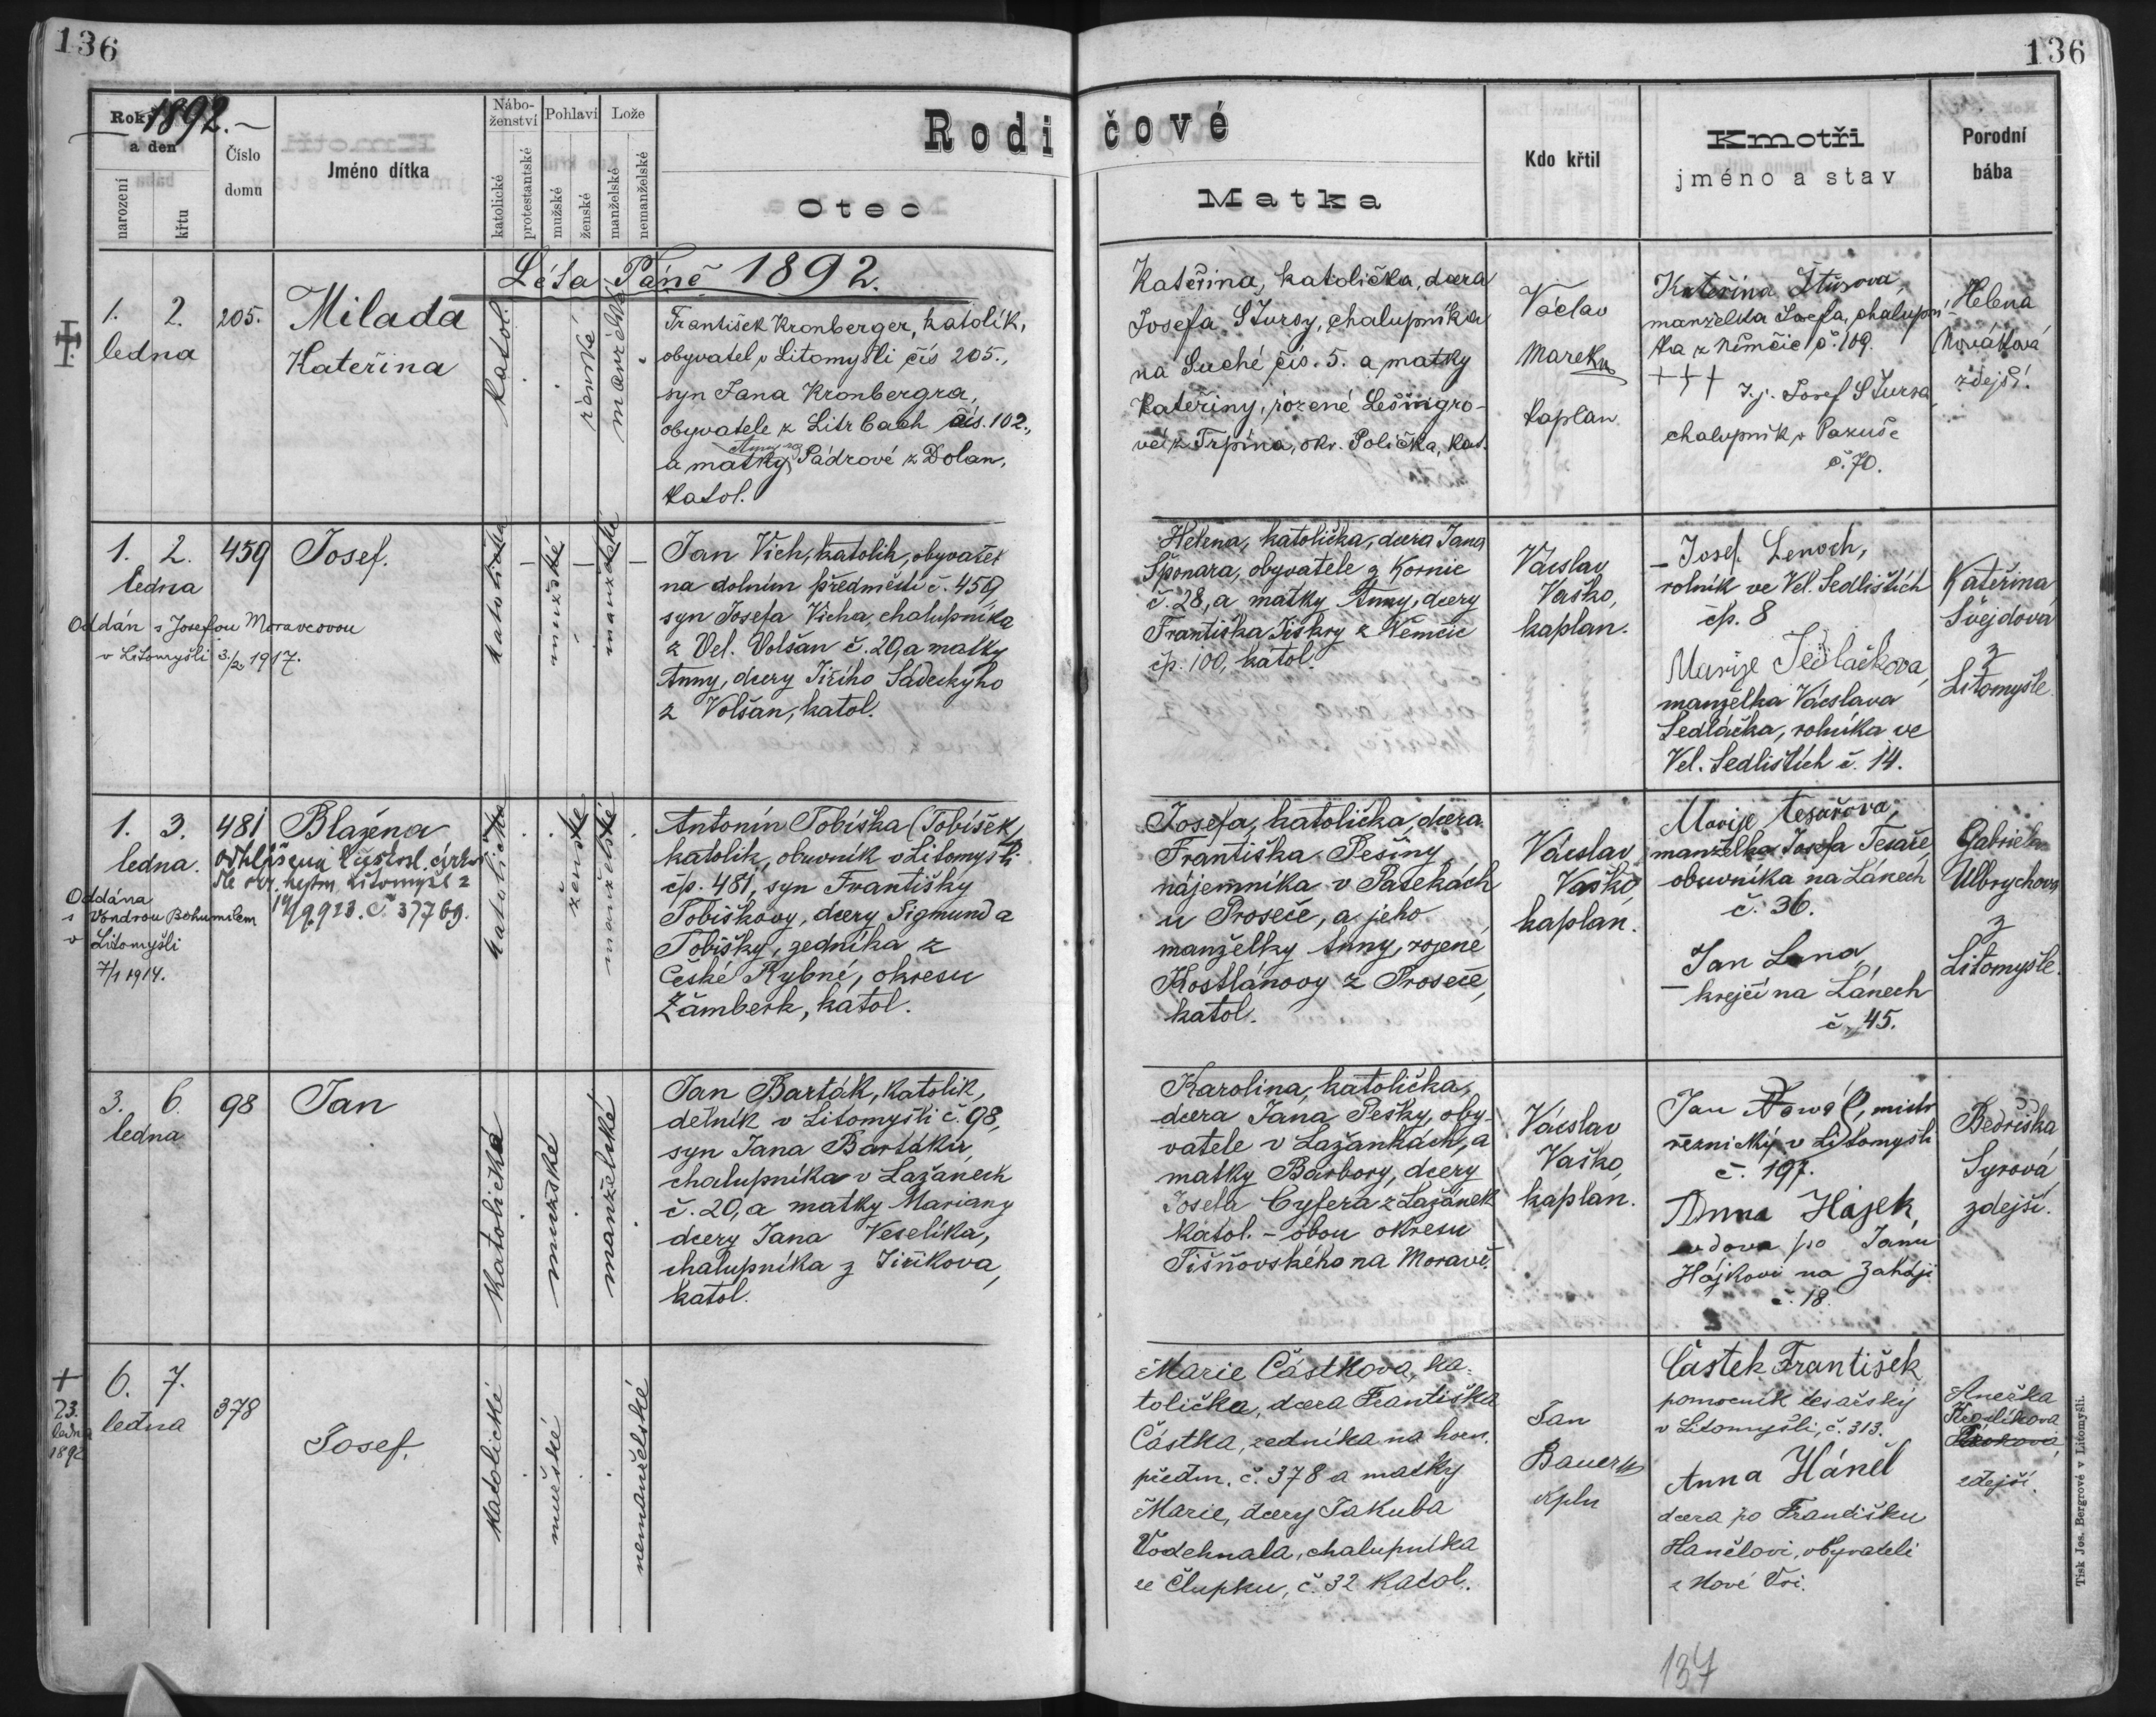 136
136
Rok 1892.
a den
narození
křtu
Číslo
domu
Jméno dítka
Nábo-
ženství
katolické
protestantské
Pohlaví
mužské
ženské
Lože
manželské
nemanželské
Rodičové
Otec
Matka
Kdo křtil
Kmotři
jméno a stav
Porodní
bába
Léta Páně 1892.
1. 2.
ledna
205.
Milada
Kateřina
katol.
ženské
manželské
František Kronberger, katolík,
obyvatel v Litomyšli čís 205.,
syn Jana Kronbergra,
obyvatele z Litrbach čís. 102.,
a matky Anny Pádrové z Dolan,
katol.
Kateřina, katolička, dcera
Josefa Štursy, chalupníka
na Suché čís. 5. a matky
Kateřiny, rozené Lešingro-
vé z Trpína, okr. Polička, kat.
Václav
Marek
kaplan
Kateřina Štursova,
manželka Josefa, chalupní-
ka z Němčic č. 109.
+++
Josef Štursa
chalupník v Pazuše
č. 70.
Helena
Nováková
zdejší.
1. 2.
ledna
459
Josef.
Oddán s Josefou Moravcovou
v Litomyšli 3/2 1917.
katolická
mužské
manželské
Jan Vich, katolík, obyvatel
na dolním předměstí č. 459
syn Josefa Vicha, chalupníka
z Vel. Volšan č. 20, a matky
Anny, dcery Jiřího Sádeckýho
z Volšan, katol.
Helena, katolička, dcera Jana
Šponara, obyvatele z Kornic
č. 28, a matky Anny, dcery
Františka Jiskry z Němčic
čp. 100, katol.
Václav
Vaško,
kaplan.
Josef Lenoch,
rolník ve Vel. Sedlištích
čp. 8
Marije Sedláčkova,
manželka Václava
Sedláčka, rolníka ve
Vel. Sedlištích č. 14.
Kateřina
Švejdova
z
Litomyšle.
1. 3.
ledna.
481
Blažena
Oddána
s Vondrou Bohumilem
v Litomyšli
7/1 1914.
katolická
ženské
manželské
Antonín Tobiška (Tobíšek)
katolík, obuvník v Litomyšli
čp. 481, syn Františky
Tobiškovy, dcery Sigmunda
Tobišky, zedníka z
České Rybné, okresu
Žamberk, katol.
Josefa, katolička, dcera
Františka Pešiny
nájemníka v Pasekách
u Proseče, a jeho
manželky Anny, rozené
Kostlánovy z Proseče,
katol.
Václav
Vaško,
kaplan.
Marije Tesařova,
manželka Josefa Tesaře,
obuvníka na Lánech
č. 36.
Jan Lana,
krejčí na Lánech
č. 45.
Gabriela
Ulbrychova
z
Litomyšle.
3. 6.
ledna
98
Jan
katolická
mužské
manželské
Jan Barták, katolík,
dělník v Litomyšli č. 98,
syn Jana Bartáka,
chalupníka v Lažanech
č. 20, a matky Mariany
dcery Jana Veselíka,
chalupníka z Jiříkova,
katol.
Karolina, katolička,
dcera Jana Pešky, oby-
vatele v Lažankách, a
matky Barbory, dcery
Josefa Cyfera z Lažánek
katol. - obou okresu
Tišňovského na Moravě.
Václav
Vaško,
kaplan.
Jan Nowák, mistr
řeznický v Litomyšli
č. 197.
Anna Hájek,
vdova po Janu
Hájkovi na Zaháji
č. 18.
Bedřiška
Syrová,
zdejší.
+
23.
ledna
1892
6. 7.
ledna
378
Josef.
katolické
mužské
nemanželské
Marie Částkova, ka-
tolička, dcera Františka
Částka, zedníka na horn.
předm. č. 378 a matky
Marie, dcery Jakuba
Vodehnala, chalupníka
ze Člupku, č. 32 katol.
Jan
Bauer
kpln
Částek František
pomocník tesařský
v Litomyšli, č. 313.
Anna Háněl
dcera po Františku
Hanělovi, obyvateli
z Nové Vsi.
Anežka
Králíkova
zdejší.
Tisk Jos. Bergrové v Litomyšli.
137